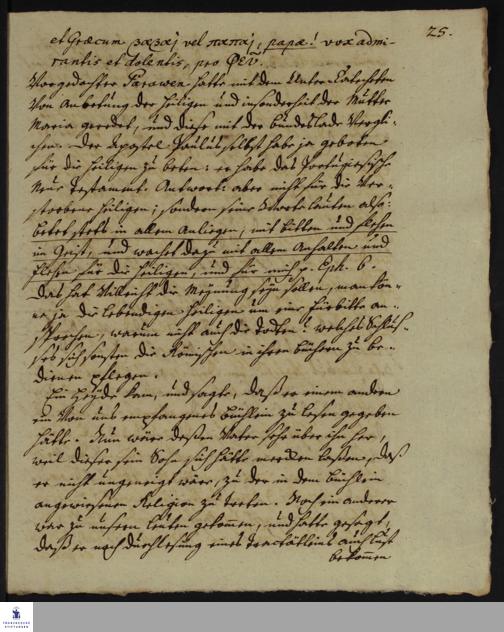 25.
et Græcum βαβαὶ vel παπαὶ, papæ! vox admi-
rantis et dolentis, pro φεῦ.
Vorgedachter Parawen hatte mit dem Unter-Catecheten
von Anbetung der Heiligen und insonderheit der Mutter
Maria geredet, und diese mit der Bundeslade vergli-
chen. Der Apostel Paulus selbst habe ja geboten
für die Heiligen zu beten: er habe das Portugiesische
Neue Testament. Antwort: aber nicht für die Ver-
storbene Heiligen; sondern seine Worte lauten also:
betet stets in allem Anliegen, mit bitten und flehen
im Geist, und wachet dazu mit allem Anhalten und
flehen für die Heiligen, und für mich p. Eph. 6.
Das hat vielleicht die Meynung seyn sollen, man kön-
ne ja die lebendigen Heiligen um eine Fürbitte an-
sprechen, warum nicht auch die Todten? welches Schlus-
ses sich sonsten die Römischen in ihren Büchern zu be-
dienen pflegen.
Ein Heyde kam, und sagte, daß er einem andern
ein von uns empfangenes Büchlein zu lesen gegeben
hätte. Nun wäre dessen Vater sehr über ihn her,
weil dieser sein Sohn sich hätte mercken lassen, daß
er nicht ungeneigt wäre, zu der in dem Büchlein
angewiesenen Religion zu treten. Noch ein anderer
war zu unsern Leuten gekommen, und hatte gesagt,
daß er nach Durchlesung eines Tractätleins auch Lust
bekommen
FRANCKESCHE
STIFTUNGEN